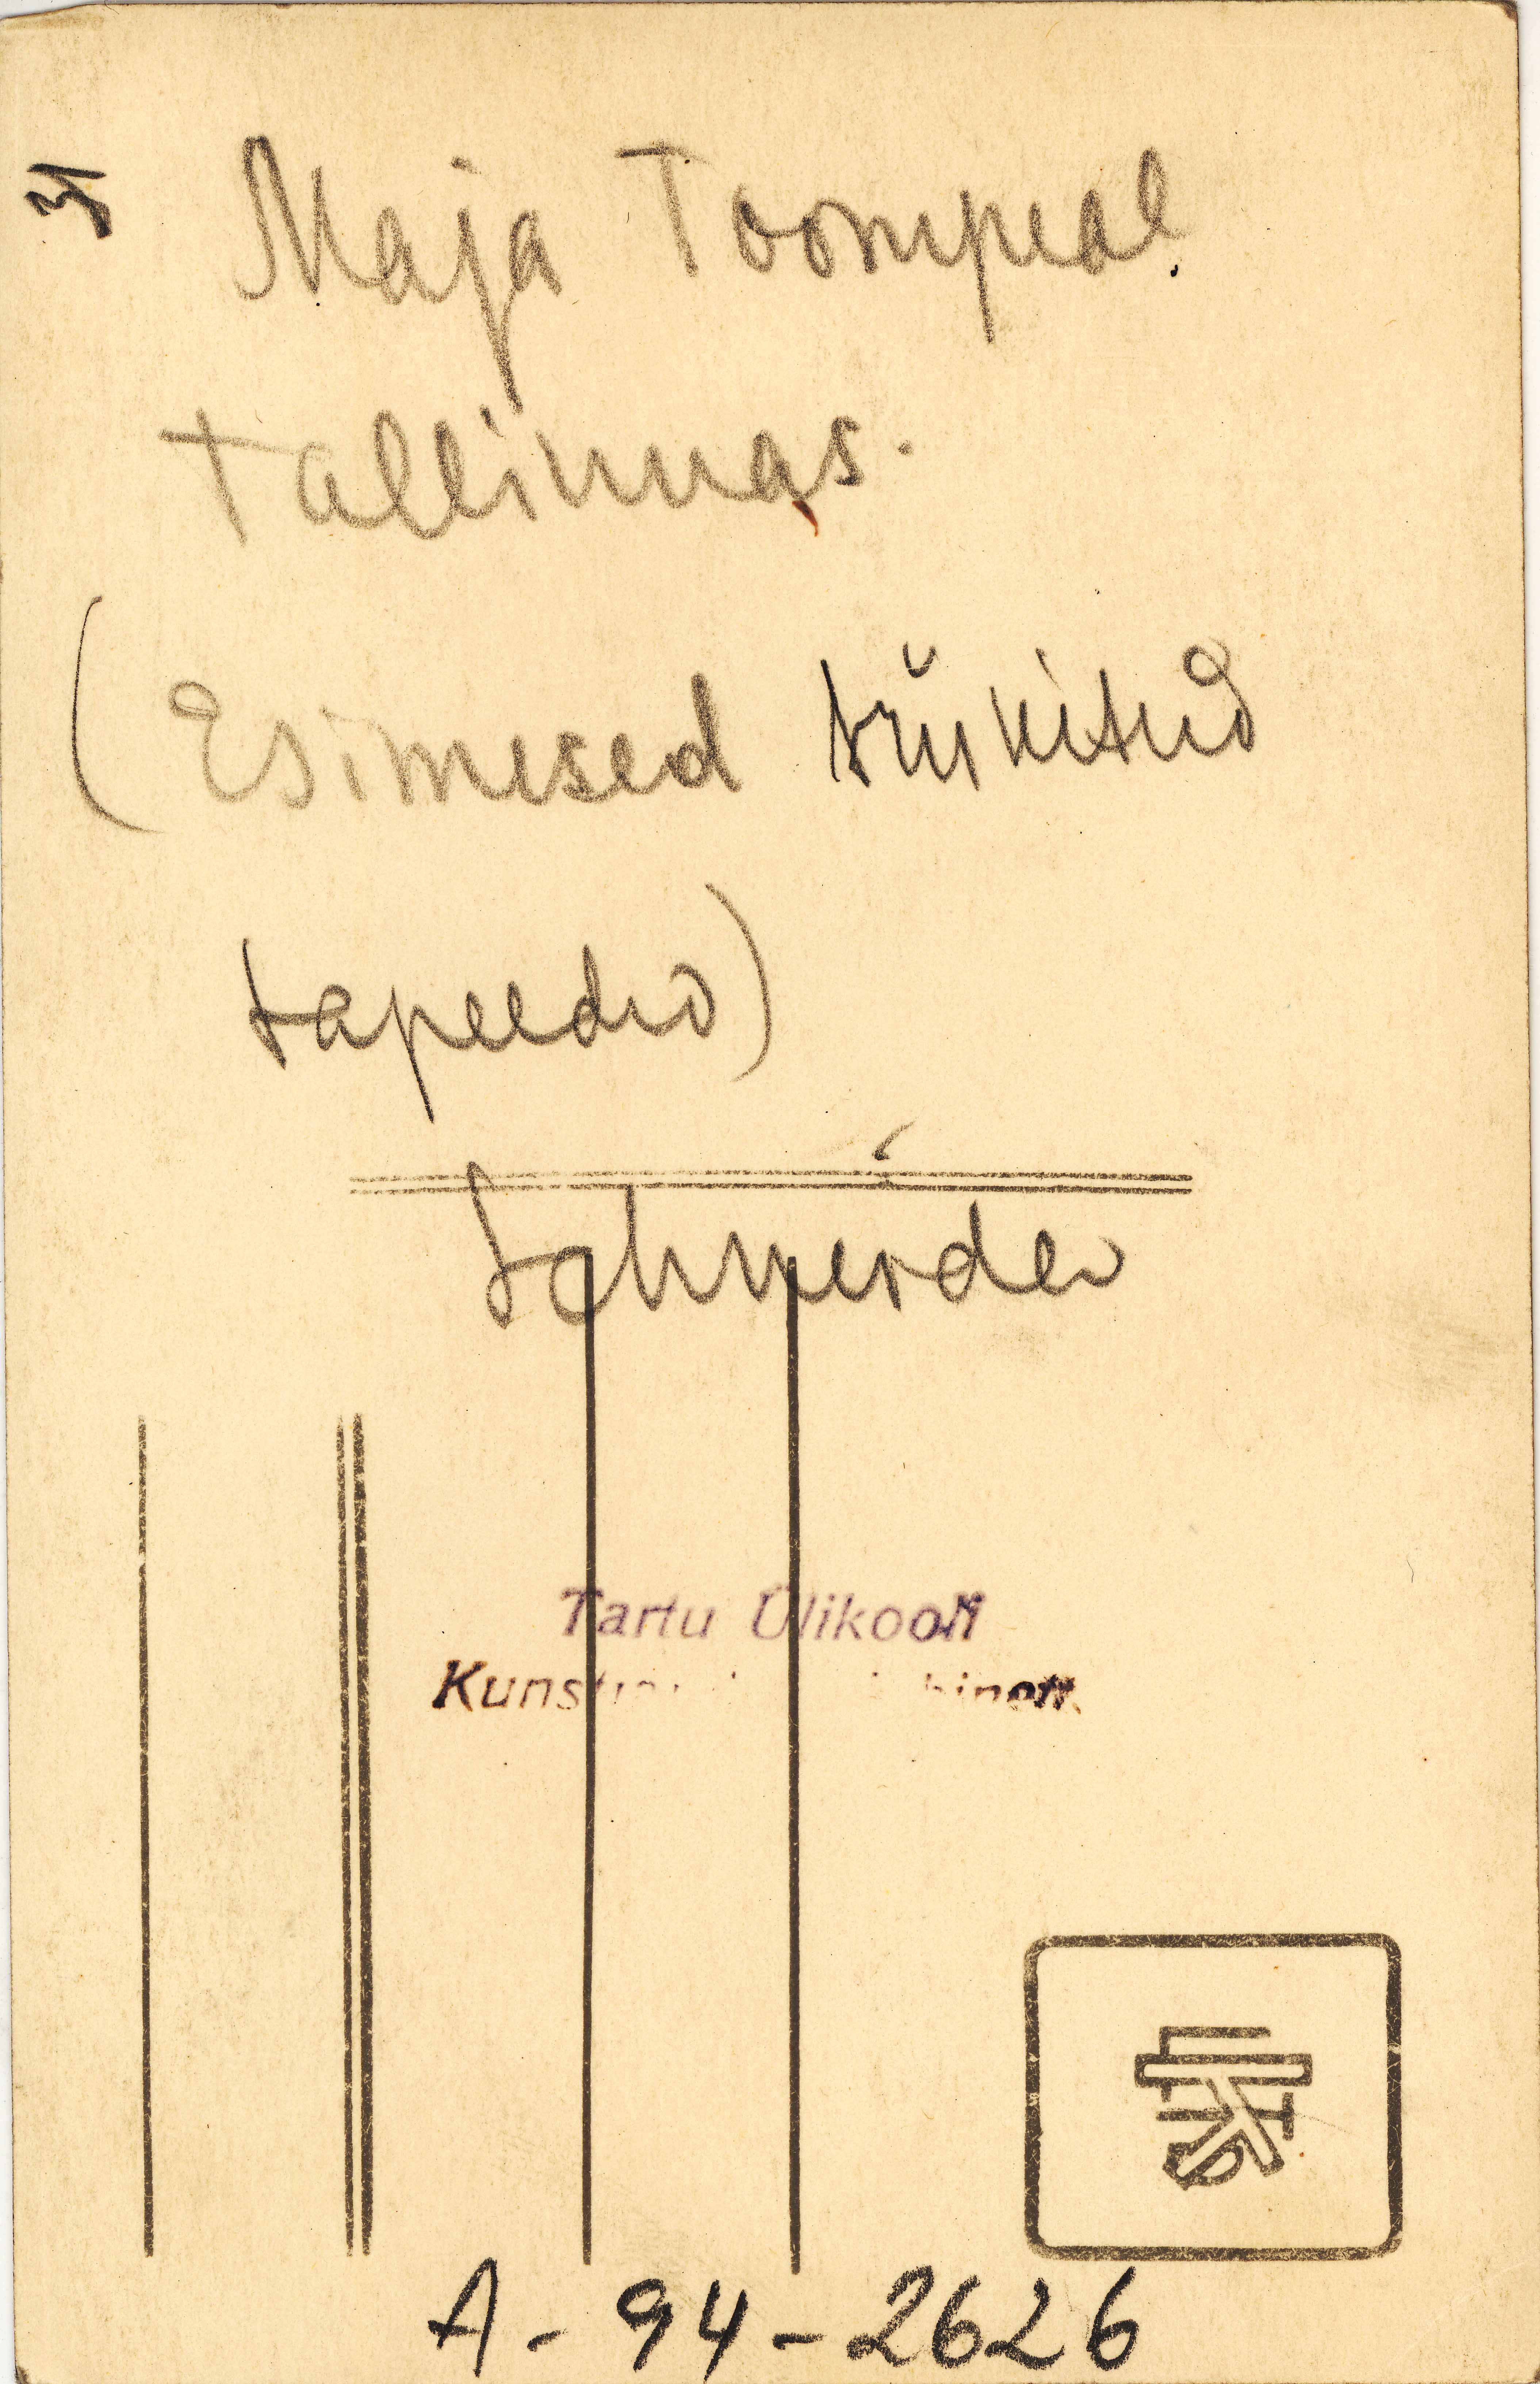 Maja Toompeal
Tallinnas.
(Esimesed trükitud
tapeedid)
Schneider
Tartu Ülikooli
A-94-2626